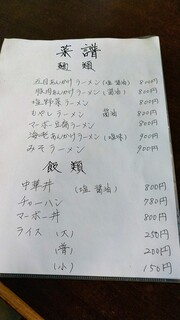 菜譜
麺類
五目あんかけラーメン(塩 醤油) 800円
豚肉あんかけラーメン(醤油) 800円
塩野菜ラーメン 800円
もやしラーメン 醤油 800円
マーボー豆腐ラーメン 900円
海鮮あんかけラーメン(塩味) 900円
みそラーメン 900円
飯類
中華丼 (塩 醤油) 800円
チャーハン 780円
マーボー丼 800円
ライス (大) 250円
(普) 200円
(小) 150円